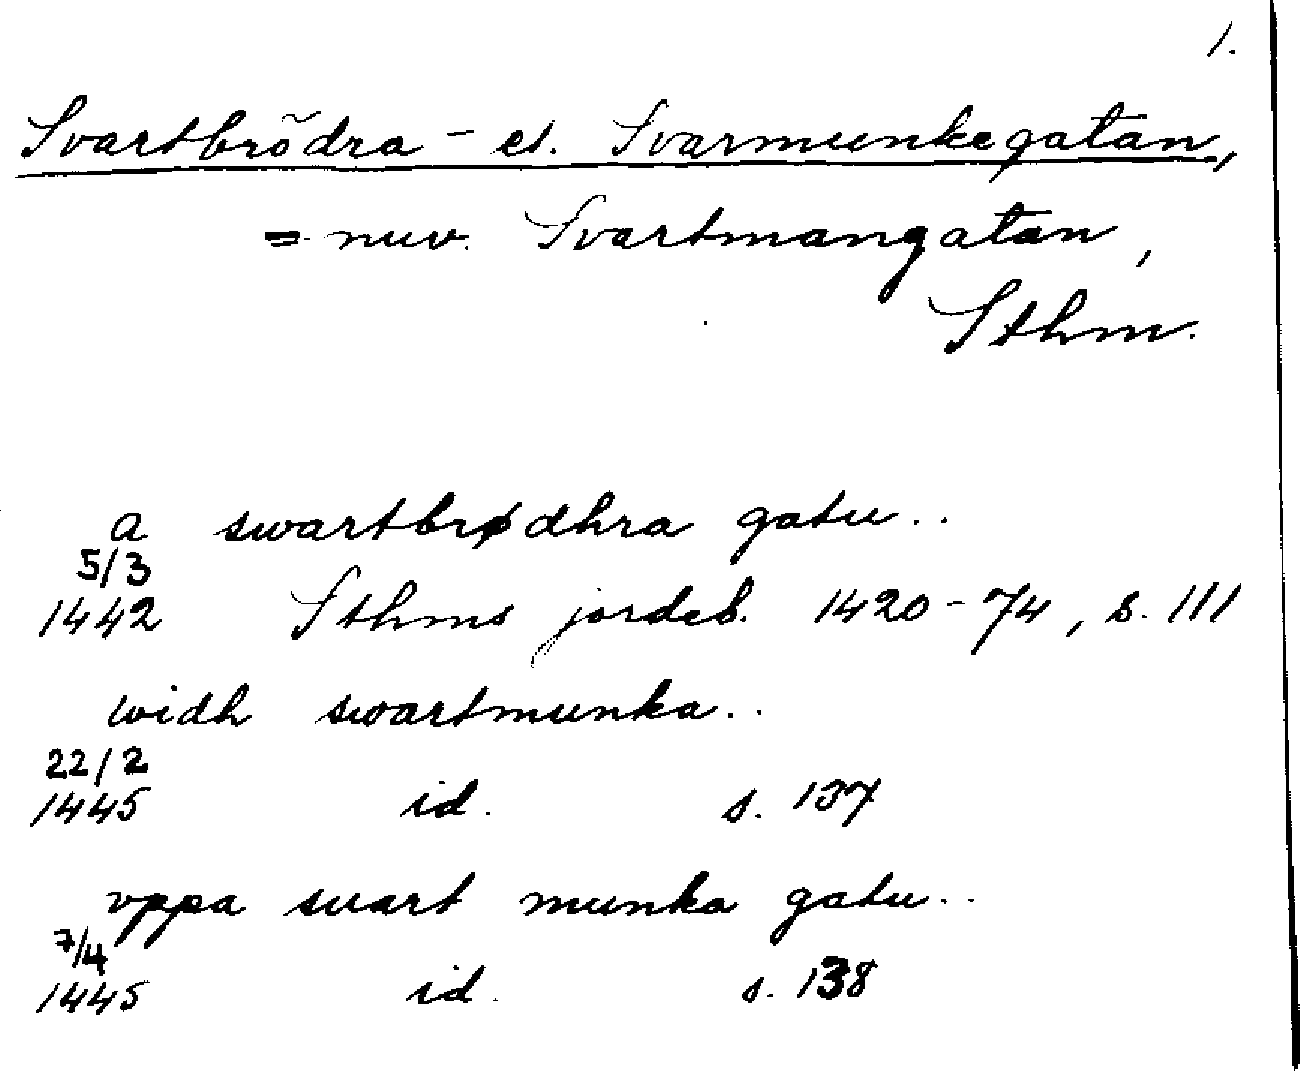 1.
Svartbrödra- el. Svarmunkegatan,
= nuv. Svartmangatan,
Sthm.
a swartbrødhra gatu..
5/3
1442 Sthms jordeb. 1420-74, s. 111
widh swartmunka..
22/2
1445 id. s. 137
vppa suart munka gatu..
7/4
1445 id. s. 138